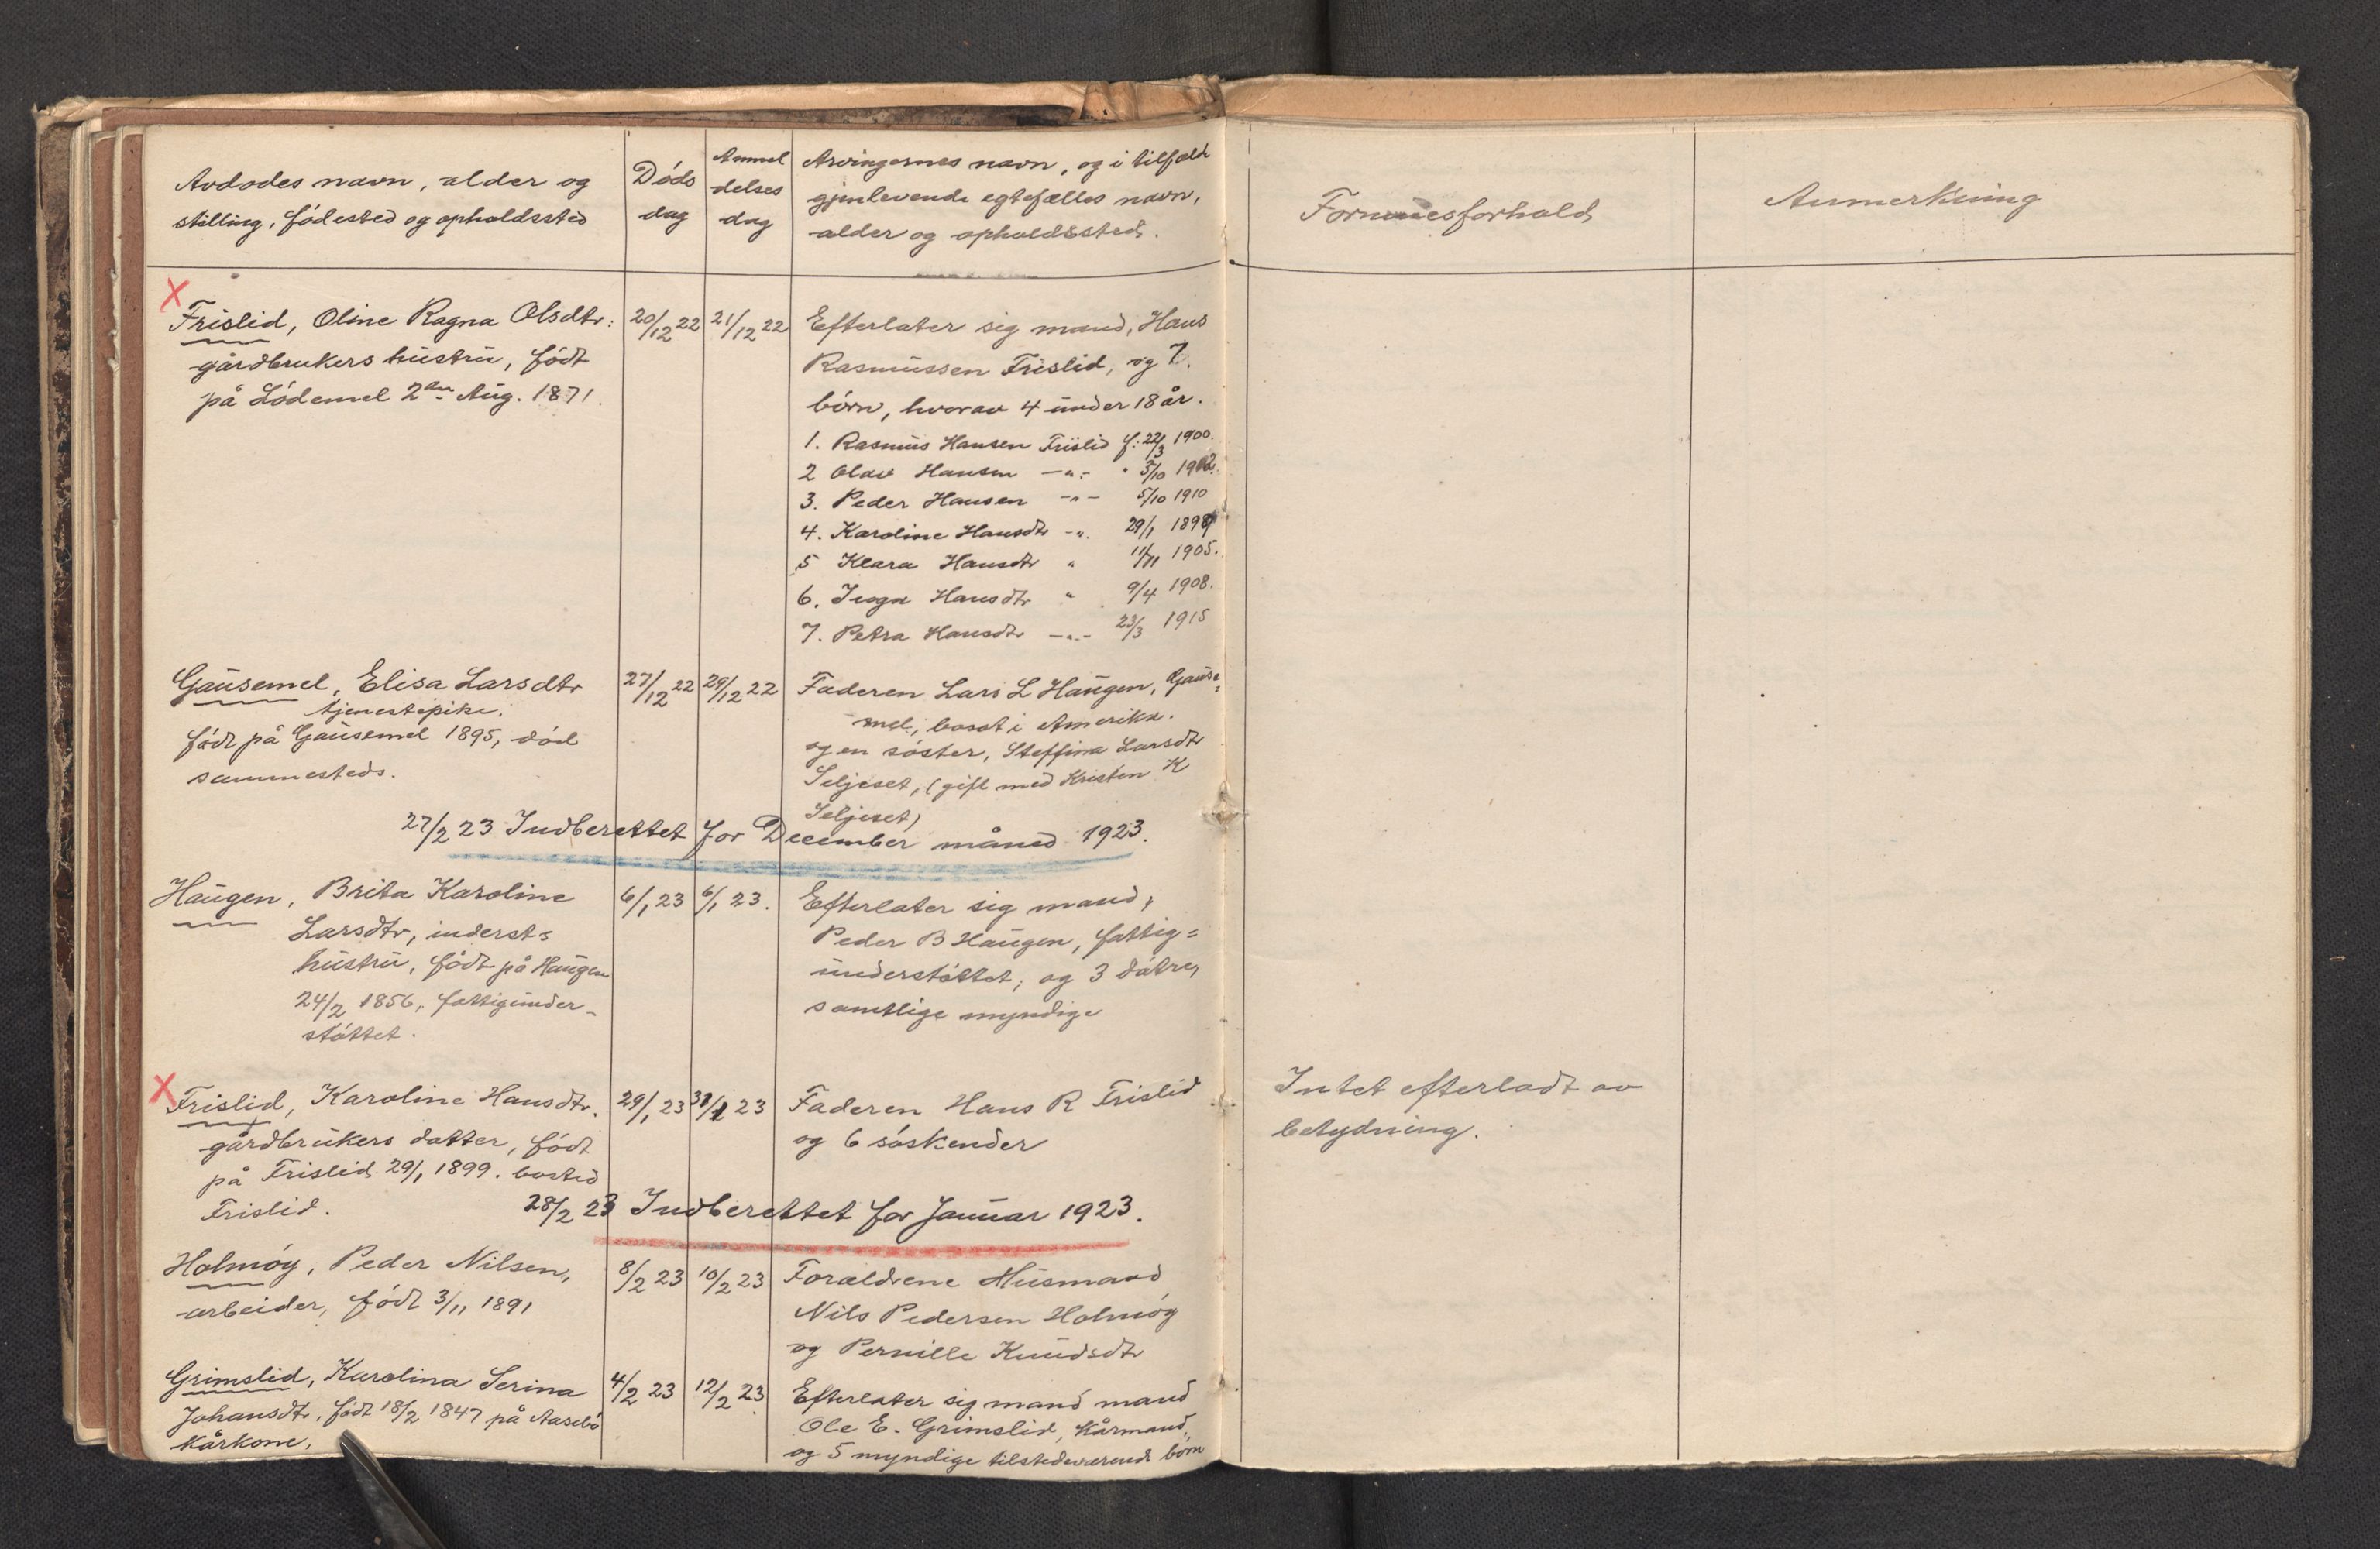 Avdødes navn, alder og
stilling, fødested og opholdssted
Døds
dag
Anmel
delses
dag
Arvingernes navn, og i tilfælde
gjenlevende egtefælles navn,
alder og opholdssted.
Formuesforhold
Anmerkning
Frislid, Oline Ragna Olsdtr:
gårdbrukers hustru, født
på Lødemel 2den Aug. 1871.
20/12 22
21/12 22
Efterlater sig mand, Hans
Rasmussen Frislid, og 7.
børn, hvorav 4 under 18 år.
1. Rasmus Hansen Frislid f: 22/3 1900.
2 Olav Hansen —"— " 3/10 1902.
3. Peder Hansen —"— 5/10 1910
4. Karoline Hansdtr —". 29/1 1899
5 Klara Hansdtr " 11/11 1905.
6. Inga Hansdtr " 9/4 1908.
7. Petra Hansdtr —"— 23/3 1915
Gausemel, Elisa Larsdtr
tjenestepike.
født på Gausemel 1895, död
sammesteds.
27/12 22
29/12 22
Faderen Lars L Haugen, Gause=
mel, bosat i Amerika.
og en søster, Steffina Larsdtr
Seljeset, (gift med Kristen K
Seljeset)
27/2 23 Indberettet for December måned 1923.
Haugen, Brita Karoline
Larsdtr, inderst=
hustru, født på Haugen
24/2 1856, fattigunder-
støttet.
6/1 23
6/1 23.
Efterlater sig mand,
Peder B Haugen, fattig=
understøttet, og 3 døtre,
samtlige myndige
Frislid, Karoline Hansdtr.
gårdbrukers datter, født
på Frislid 29/1 1899. bosted
Frislid.
29/1 23
31/1 23
Faderen Hans R Frislid
og 6 søskender
Intet efterladt av
betydning.
28/2 23 Indberettet for Januar 1923.
Holmøy, Peder Nilsen,
arbeider, født 3/11 1891
8/2 23
10/2 23
Forældrene Husmand
Nils Pedersen Holmøy
og Pernille Knudsdtr
Grimslid, Karolina Serina
Johansdtr, født 18/2 1847 på Aasebø
kårkone.
4/2 23
12/2 23
Efterlater sig mand mand
Ole E. Grimslid, Kårmand,
og 5 myndige tilstedeværende børn